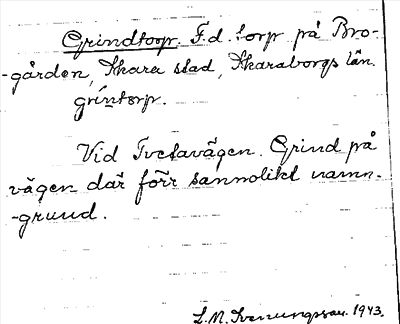 Grindtorp. F.d. torp på Bro-
-gården, Skara stad, Skaraborgs län.
grintorp.
Vid Tvetavägen. Grind på
vägen där förr sannolikt namn-
-grund.
L.M. Svenungsson. 1943.